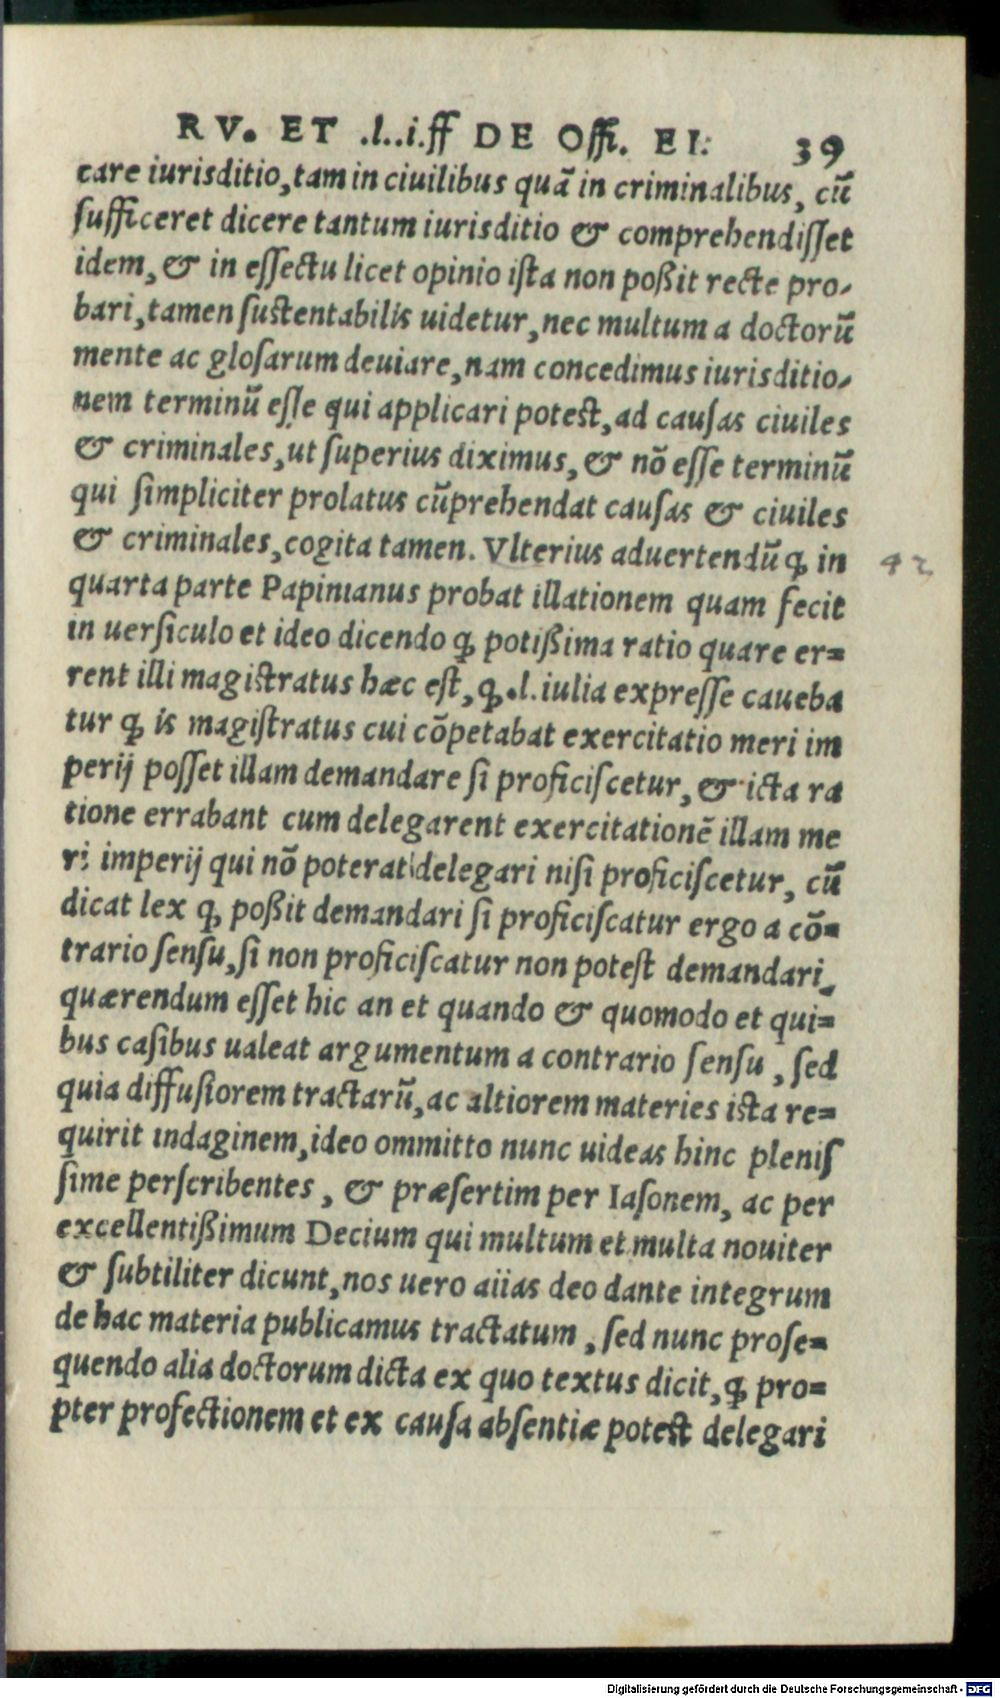 RV. ET .l..i.ff DE Offi. EI: 39
care iurisditio,tam in ciuilibus quã in criminalibus, cũ
sufficeret dicere tantum iurisditio & comprehendisset
idem,& in effectu licet opinio ista non poßit recte pro-
bari,tamen sustentabilis uidetur,nec multum a doctorũ
mente ac glosarum deuiare,nam concedimus iurisditio-
nem terminũ esse qui applicari potest,ad causas ciuiles
& criminales,ut superius diximus,& nõ esse terminũ
qui simpliciter prolatus cũprehendat causas & ciuiles
& criminales,cogita tamen. Vlterius aduertendũ ꝙ in
42
quarta parte Papinianus probat illationem quam fecit
in uersiculo et ideo dicendo ꝙ potißima ratio quare er=
rent illi magistratus hæc est, ꝙ.l. iulia expresse caueba
tur ꝙ is magistratus cui cõpetabat exercitatio meri im
perij posset illam demandare si proficiscetur, & icta ra
tione errabant cum delegarent exercitationẽ illam me
ri imperij qui nõ poterat delegari nisi proficiscetur, cũ
dicat lex ꝙ poßit demandari si proficiscatur ergo a cõ=
trario sensu,si non proficiscatur non potest demandari,
quærendum esset hic an et quando & quomodo et qui=
bus casibus ualeat argumentum a contrario sensu , sed
quia diffusiorem tractarũ,ac altiorem materies ista re=
quirit indaginem,ideo ommitto nunc uideas hinc plenis
sime perscribentes , & præsertim per Iasonem, ac per
excellentißimum Decium qui multum et multa nouiter
& subtiliter dicunt,nos uero aiias deo dante integrum
de hac materia publicamus tractatum , sed nunc prose=
quendo alia doctorum dicta ex quo textus dicit,ꝙ pro=
pter profectionem et ex causa absentiæ potest delegari
Digitalisierung gefördert durch die Deutsche Forschungsgemeinschaft - DFG